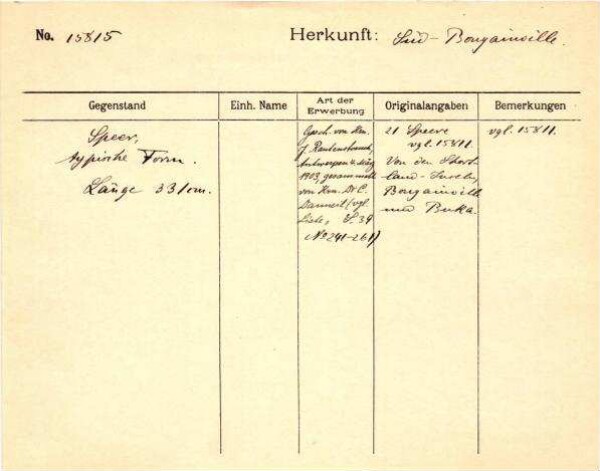 No. 15815 Herkunft: Süd-Bougainville.
Gegenstand Einh. Name Art der Erwerbung Originalangaben Bemerkungen
Speer,
typische Form.
Länge 331 cm.
Gesch. von Hrn.
J. Rautenstrauch,
Antwerpen
1903, gesammelt
von Hrn. Dr C.
(vgl.
Liste, S. 39
No 241-261)
21 Speere
vgl. 15811.
Von den Short-
land-Inseln,
Bougainville
und Buka.
vgl. 15811.